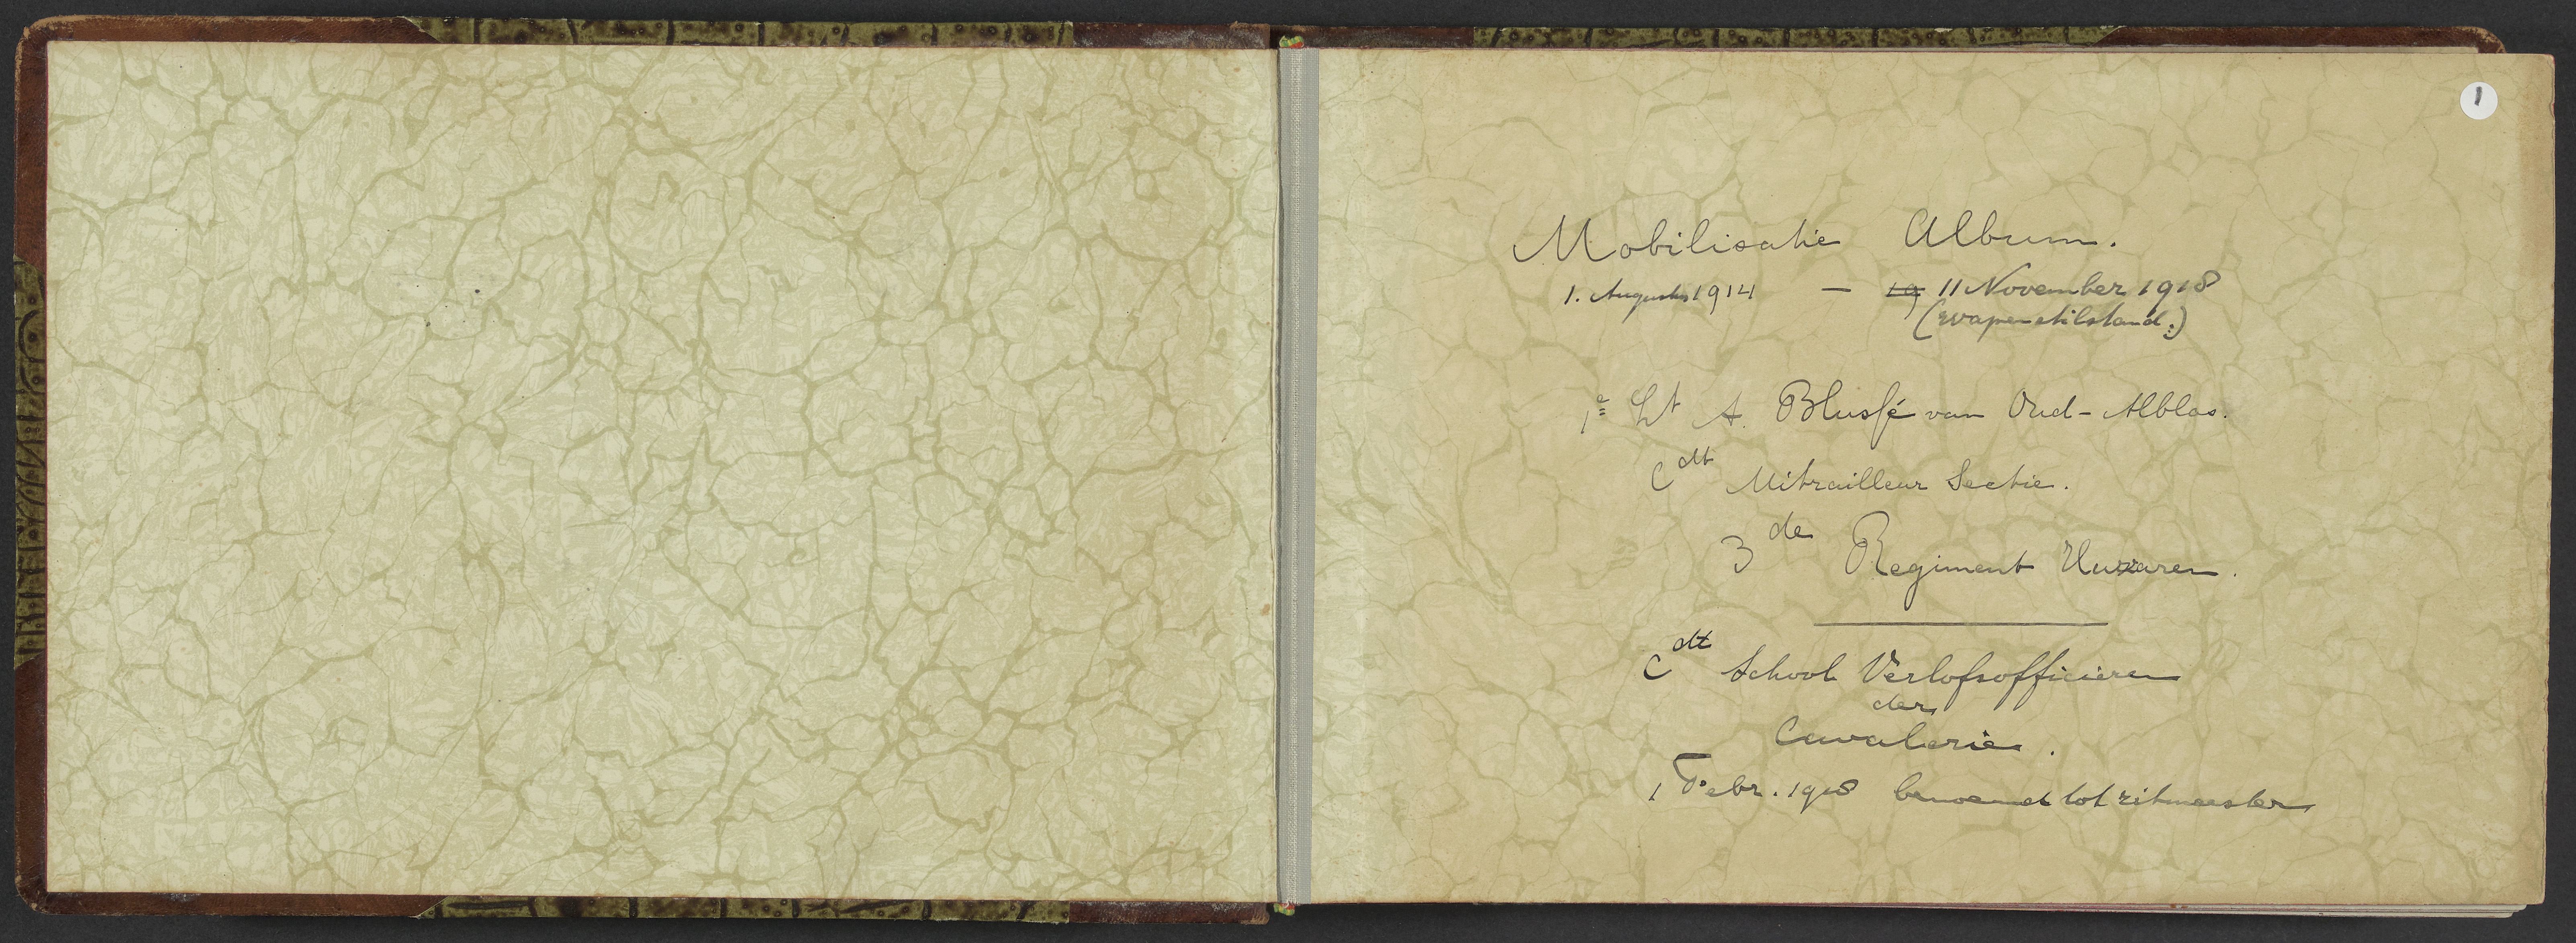 1
Mobilisatie Album.
1. Augustus 1914 — 19 11 November 1918
(wapenstilstand.)
1e Lt A. Blussé van Oud-Alblas.
Cdt Mitrailleur Sectie.
3de Regiment Huzaren.
Cdt School Verlofsofficieren
der
Cavalerie.
1 Febr. 1918 benoemd tot ritmeester